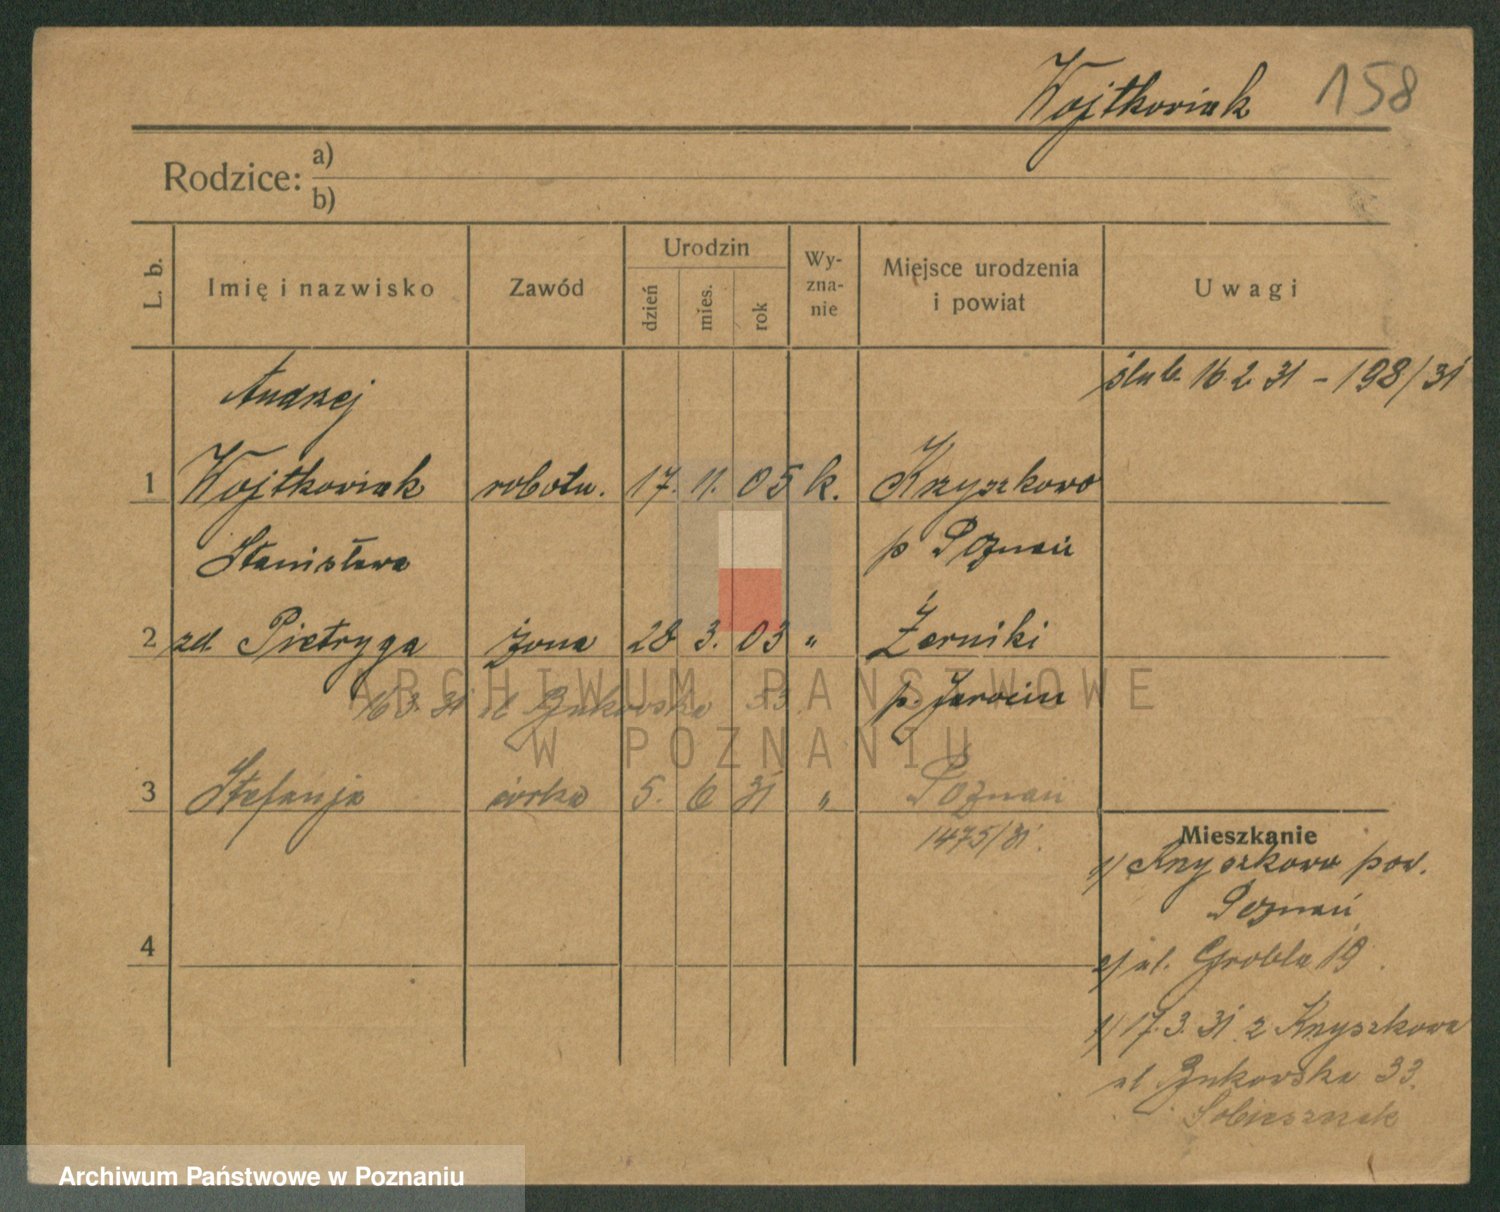 Wojtkowiak 158
Rodzice: a)
b)
L. b. Imię i nazwisko Zawód Urodzin dzień mies. rok Wy-zna-nie Miejsce urodzenia i powiat Uwagi
ślub 16 2 31 - 198/31
Andrzej
1 Wojtkowiak robotn. 17. 11. 05 k. Krzyszkowo
Stanisława p Poznań
2 zd. Pietryga żona 28 3. 03 " Żerniki
16 3. 31 ul Bukowska 33 p. Jarocin
3 Stefanja córka 5. 6 31 " Poznań
1475/31.
4
Mieszkanie
1) Krzyszkowo pow.
Poznań
2) ul. Grobla 19
1) 17. 3. 31 z Krzyszkowa
ul. Bukowska 33.
ARCHIWUM PAŃSTWOWE
W POZNANIU
Archiwum Państwowe w Poznaniu